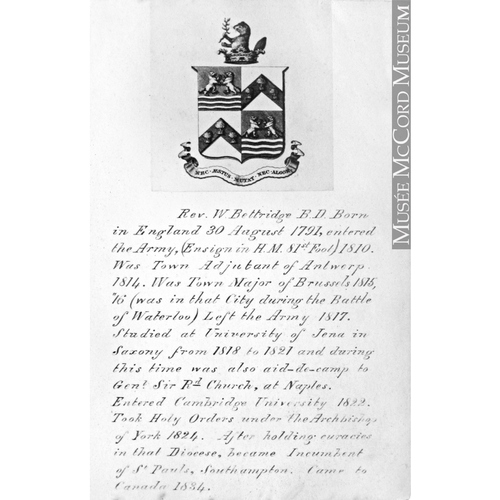 NEC ÆSTUS MUTAT NEC ALGOR
Rev. W Bettridge B.D. Born
in England 30 August 1791, entered
the Army, (Ensign in H.M. 81st Foot) 1810.
Was Town Adjutant of Antwerp
1814. Was Town Major of Brussels 1815,
'16 (was in that City during the Battle
of Waterloo) Left the Army 1817.
Studied at University of Jena in
Saxony from 1818 to 1821 and during
this time was also aid-de-camp to
Genl Sir Rd Church, at Naples.
Entered Cambridge University 1822.
Took Holy Orders under the Archbishop
of York 1824. After holding curacies
in that Diocese, became Incumbent
of St Pauls, Southampton. Came to
Canada 1834.
MUSÉE MCCORD MUSEUM